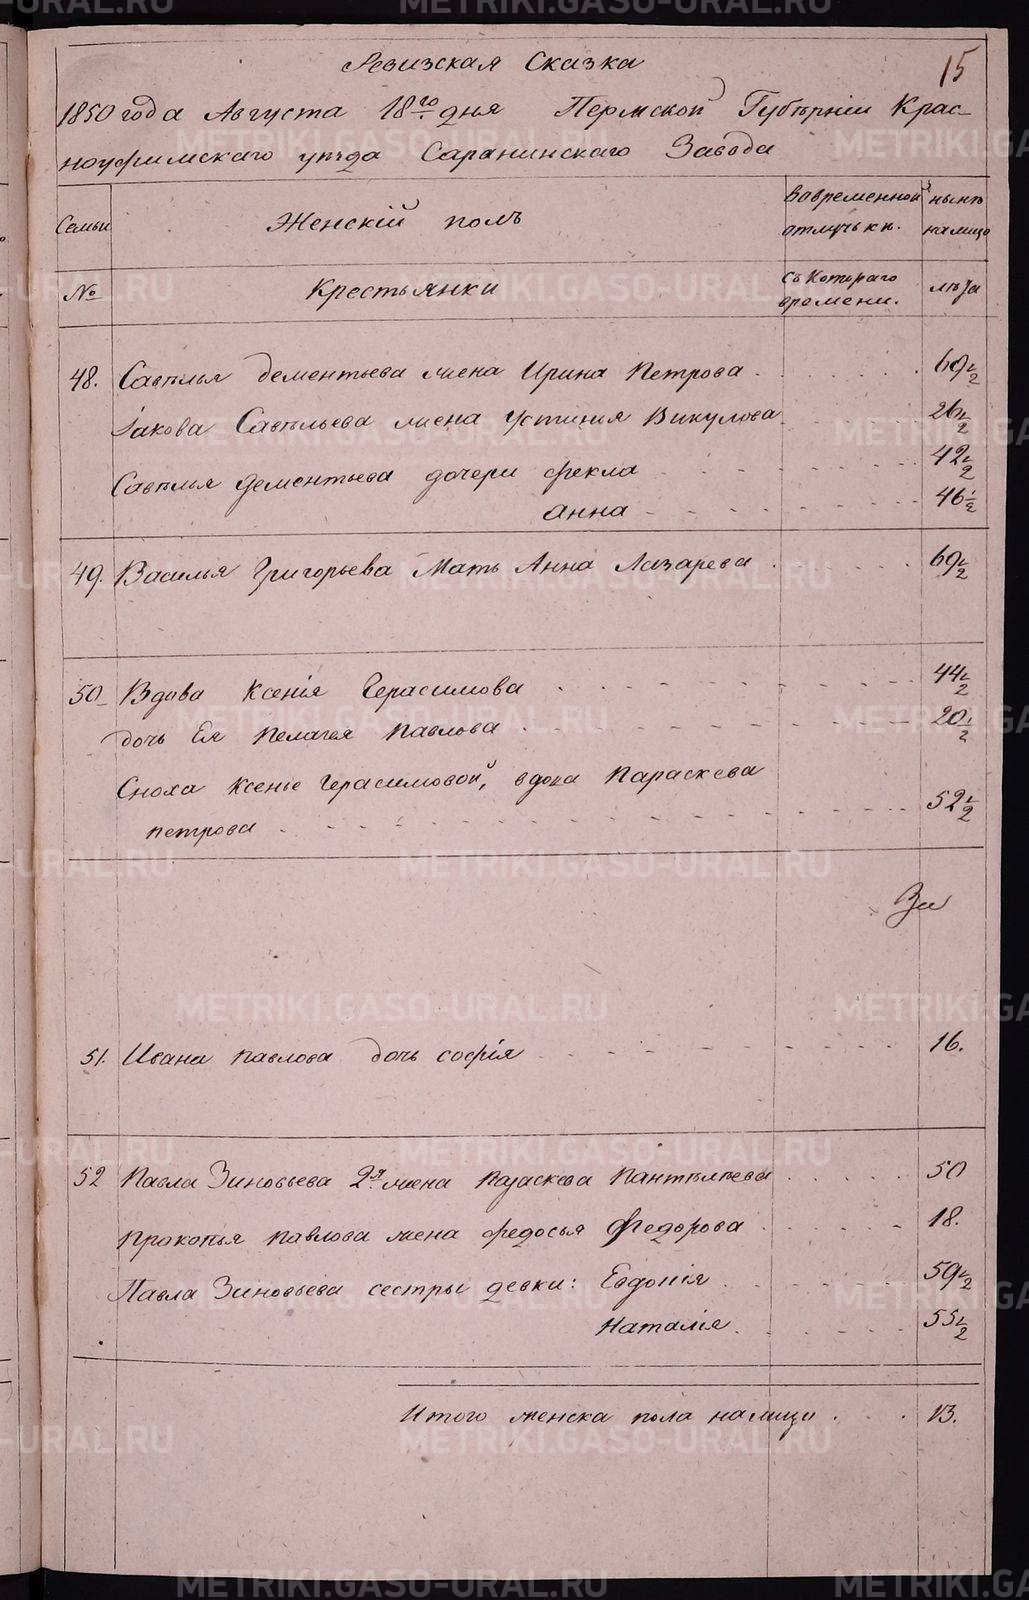 15
Ревизская Сказка
1850 года Августа 18го дня Пермской Губѣрніи Крас-
ноуфимскаго уѣзда Саранинскаго Завода
Семьи Женскій полъ Вовременной отлучькѣ. нынѣ налицо
№ Крестьянки съ Котораго времени. лѣта
48. Савѣлья дементьева жена Ирина Петрова 69 1/2
Iакова Савѣльева жена Устинія Викулова 26 1/2
Савѣлья дементьева дочери фекла 42 1/2
анна 46 1/2
49. Василья Григорьева Мать Анна Лазарева 69 1/2
50 Вдова Ксенія Герасимова 44 1/2
дочь Ея Пелагея Павлова 20 1/2
Сноха Ксенье Герасимовой, вдова Параскева
петрова 52 1/2
51. Ивана павлова дочь софія 16.
52 Павла Зиновьева 2я жена Параскева Пантѣлѣева 50
Прокопья павлова жена федосья Федорова 18.
Павла Зиновьева сестры девки: Евдокія 59 1/2
Наталія 55 1/2
Итого женска пола налицо 13.
METRIKI.GASO-URAL.RU